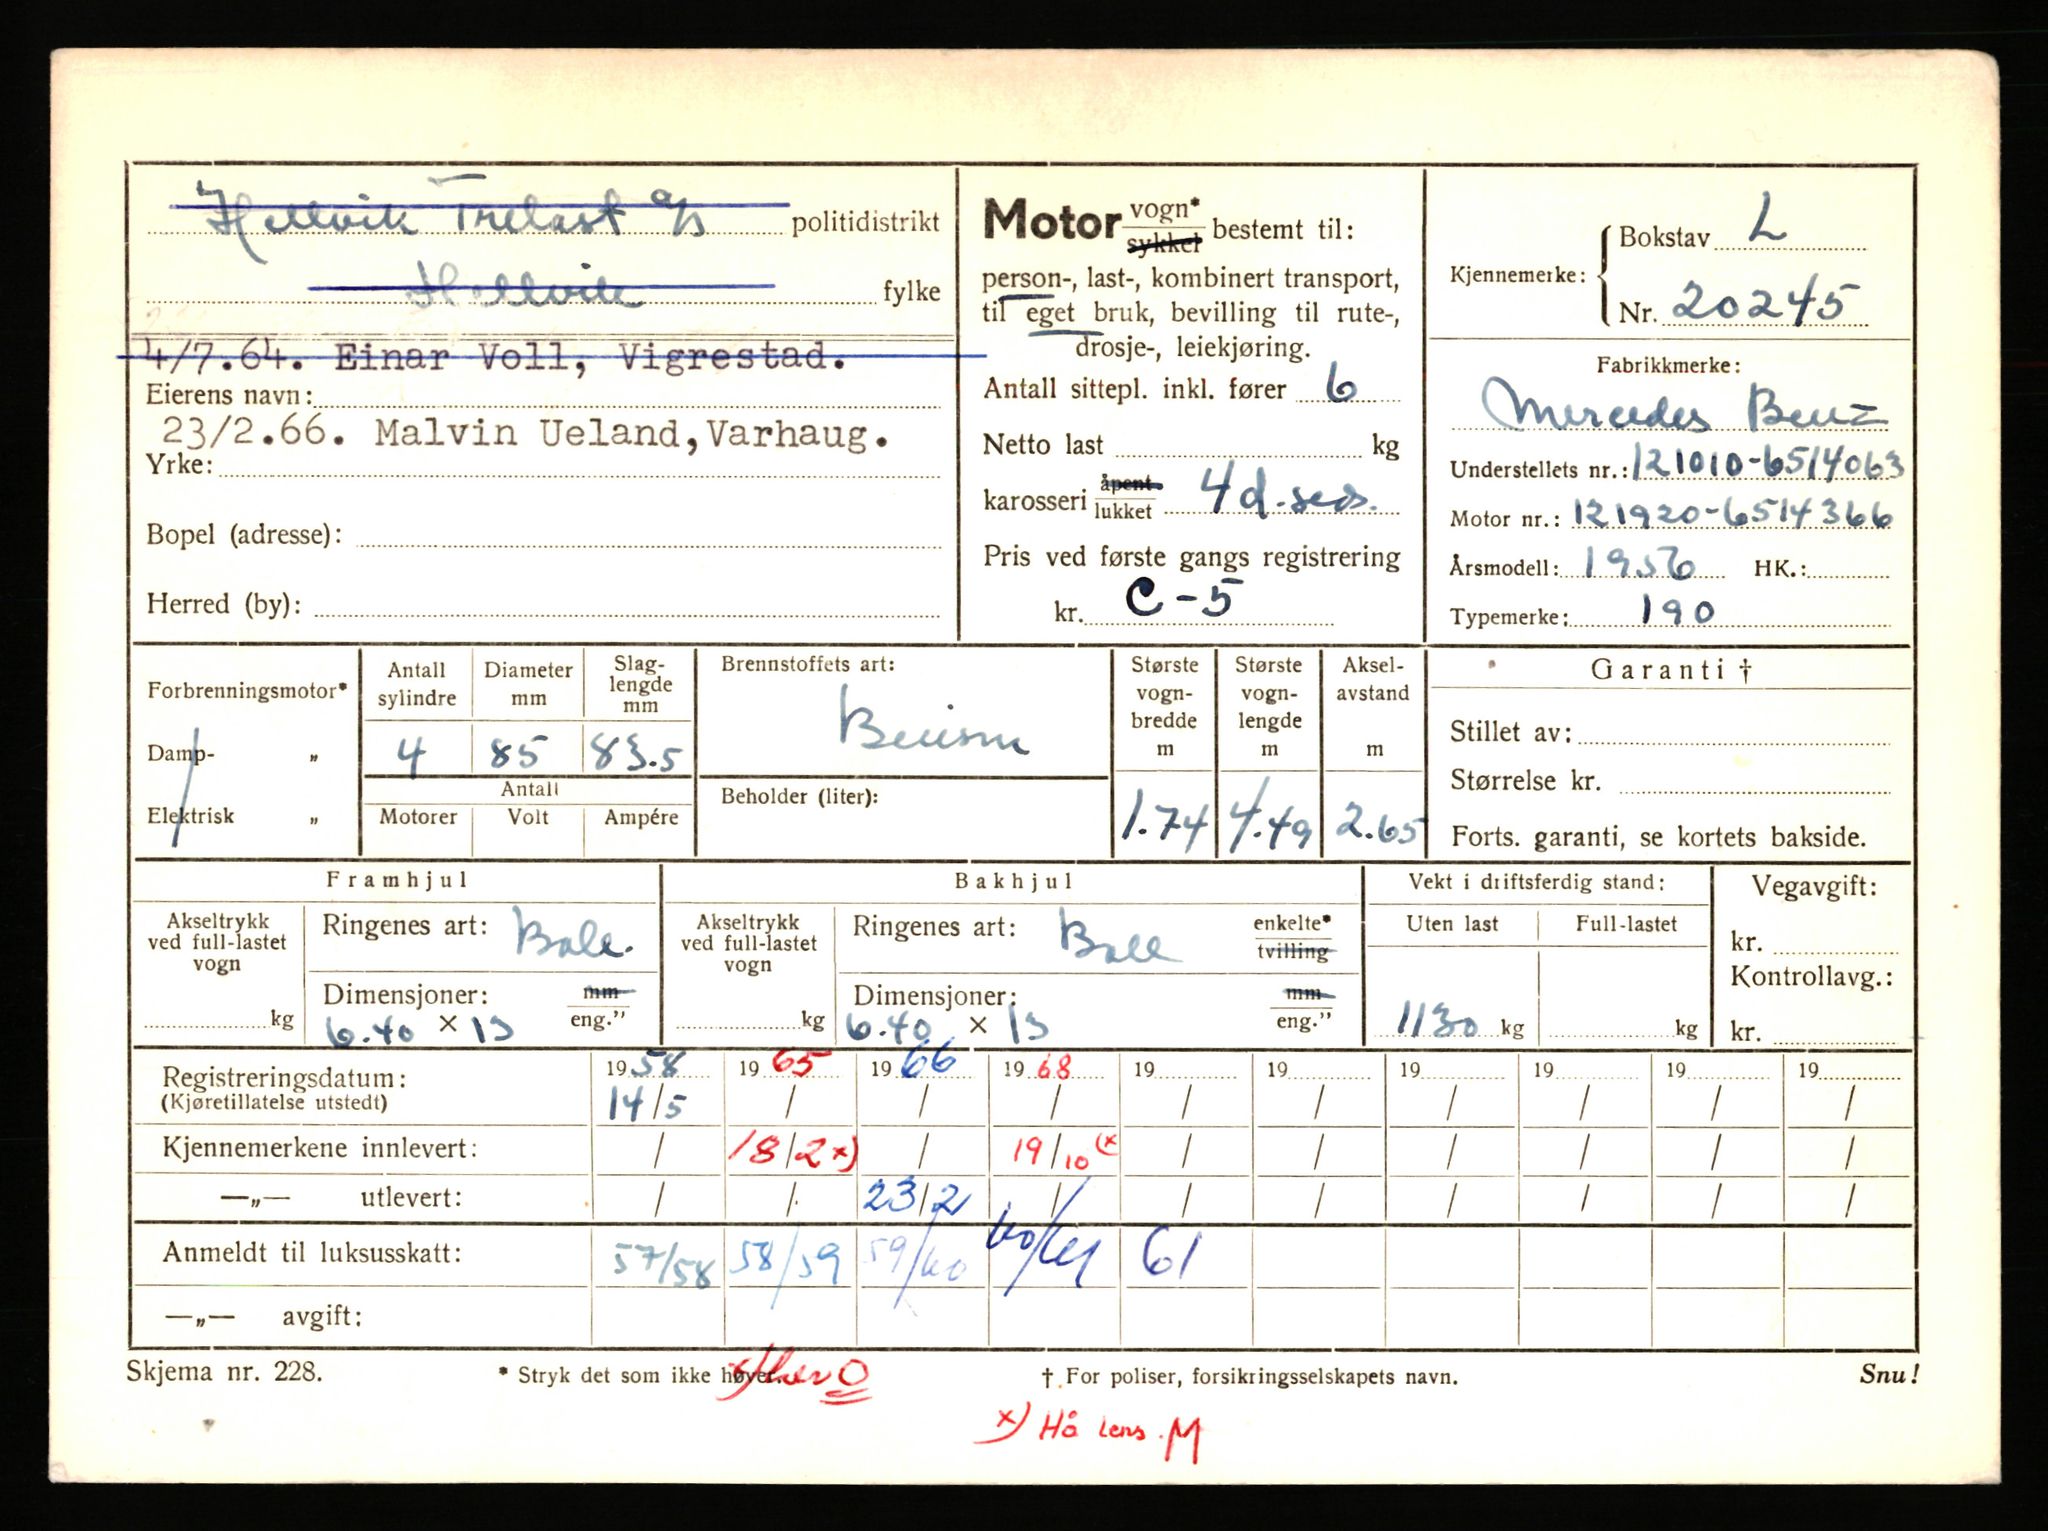 Hellvik Trelast a/s politidistrikt
Hellvik fylke
4/7.64. Einar Voll, Vigrestad.
Eierens navn:
23/2.66. Malvin Ueland, Varhaug.
Yrke:
Bopel (adresse):
Herred (by):
Motor vogn* sykkel bestemt til:
person-, last-, kombinert transport,
til eget bruk, bevilling til rute-,
drosje-, leiekjøring.
Antall sittepl. inkl. fører 6
Netto last kg
karosseri åpent lukket 4 d. sed.
Pris ved første gangs registrering
kr. C-5
Kjennemerke: Bokstav L
Nr. 20245
Fabrikkmerke:
Mercedes Benz
Understellets nr.: 121010-6514063
Motor nr.: 121920-6514366
Årsmodell: 1956 HK.:
Typemerke: 190
Forbrenningsmotor*
Damp- „
Elektrisk „
Antall sylindre Diameter mm Slag-lengde mm
4 85 83.5
Antall
Motorer Volt Ampére
Brennstoffets art:
Bensin
Beholder (liter):
Største vogn-bredde m Største vogn-lengde m Aksel-avstand m
1.74 4.49 2.65
Garanti †
Stillet av:
Størrelse kr.
Forts. garanti, se kortets bakside.
Framhjul
Akseltrykk ved full-lastet vogn kg
Ringenes art: Ball.
Dimensjoner: mm eng."
6.40 × 13
Bakhjul
Akseltrykk ved full-lastet vogn kg
Ringenes art: Ball enkelte* tvilling
Dimensjoner: mm eng."
6.40 × 13
Vekt i driftsferdig stand:
Uten last Full-lastet
1130 kg kg
Vegavgift:
kr.
Kontrollavg.:
kr.
Registreringsdatum: 1958 1965 1966 1968 19 19 19 19 19 19
(Kjøretillatelse utstedt) 14/5 / / / / / / / / /
Kjennemerkene innlevert: / 18/2 x) / 19/10 (x / / / / / /
—„— utlevert: / / 23/2 / / / / / / /
Anmeldt til luksusskatt: 57/58 58/59 59/60 60/61 61
—„— avgift:
Skjema nr. 228. * Stryk det som ikke høver. † For poliser, forsikringsselskapets navn. Snu!
x) Hå lens. M